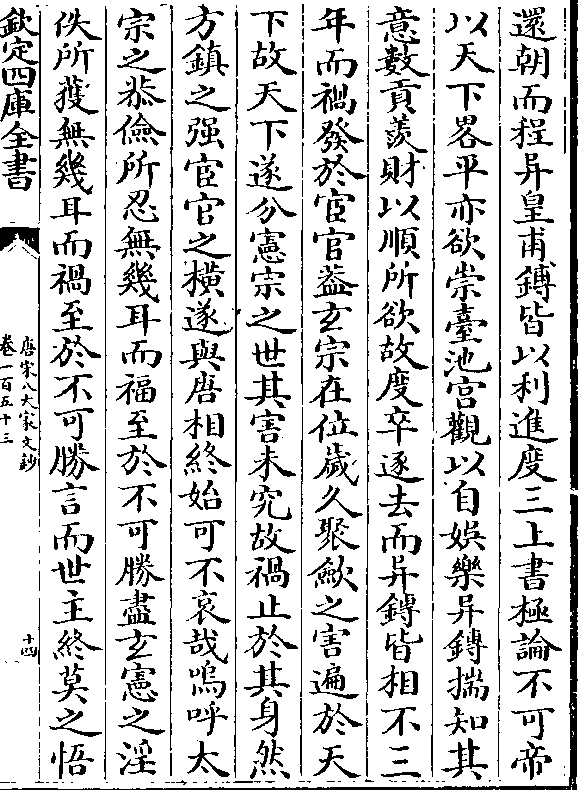 還朝而程异皇甫鎛皆以利進度三上書極論不可帝
以天下畧平亦欲崇臺池宫觀以自娯樂异鎛揣知其
意數貢羨財以順所欲故度卒逐去而异鎛皆相不三
年而禍發於宦官葢玄宗在位歲久聚歛之害遍於天
下故天下遂分憲宗之世其害未究故禍止於其身然
方鎮之强宦官之橫遂與唐相終始可不哀哉嗚呼太
宗之恭儉所忍無幾耳而福至於不可勝盡玄憲之淫
佚所獲無幾耳而禍至於不可勝言而世主終莫之悟
欽定四庫全書
唐宋八大家文鈔
卷一百五十三
十四